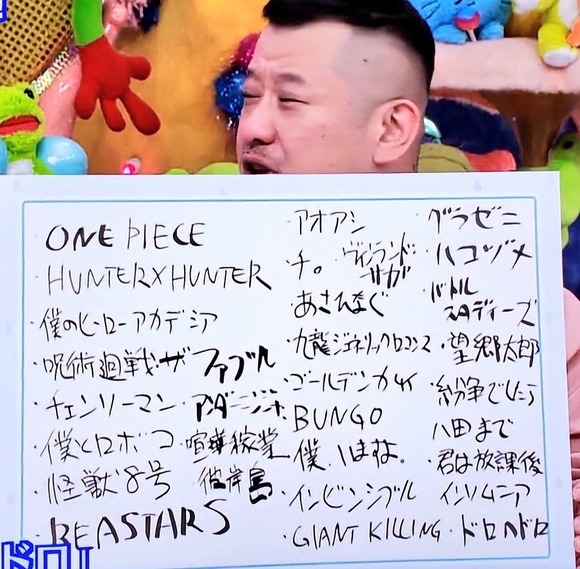 ONE PIECE
・HUNTER×HUNTER
・僕のヒーローアカデミア
・呪術廻戦・ザファブル
・チェンソーマン・アンダーニンジャ
・僕とロボコ・喧嘩稼業
・怪獣8号 彼岸島
・BEASTARS
・アオアシ
・チ。 ヴィンランド
サガ
あさひなぐ
・九龍ジェネリックロマンス
・ゴールデンカムイ
・BUNGO
・僕
・インビンシブル
・GIANT KILLING
・グラゼニ
・ハコヅメ
・バトル
スタディーズ
・望郷太郎
・紛争でしたら
八田まで
・君は放課後
インソムニア
・ドロヘドロ